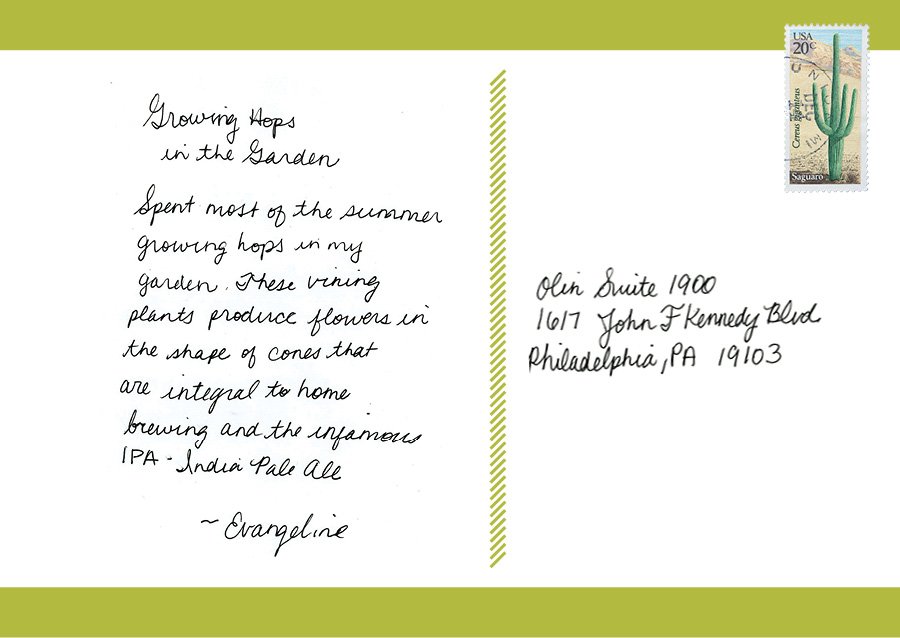 Growing Hops
in the Garden
Spent most of the summer
growing hops in my
garden. These vining
plants produce flowers in
the shape of cones that
are integral to home
brewing and the infamous
IPA - India Pale Ale
~ Evangeline
USA
20c
Cereus giganteus
Saguaro
DEC
Olin Suite 1900
1617 John F Kennedy Blvd
Philadelphia, PA 19103